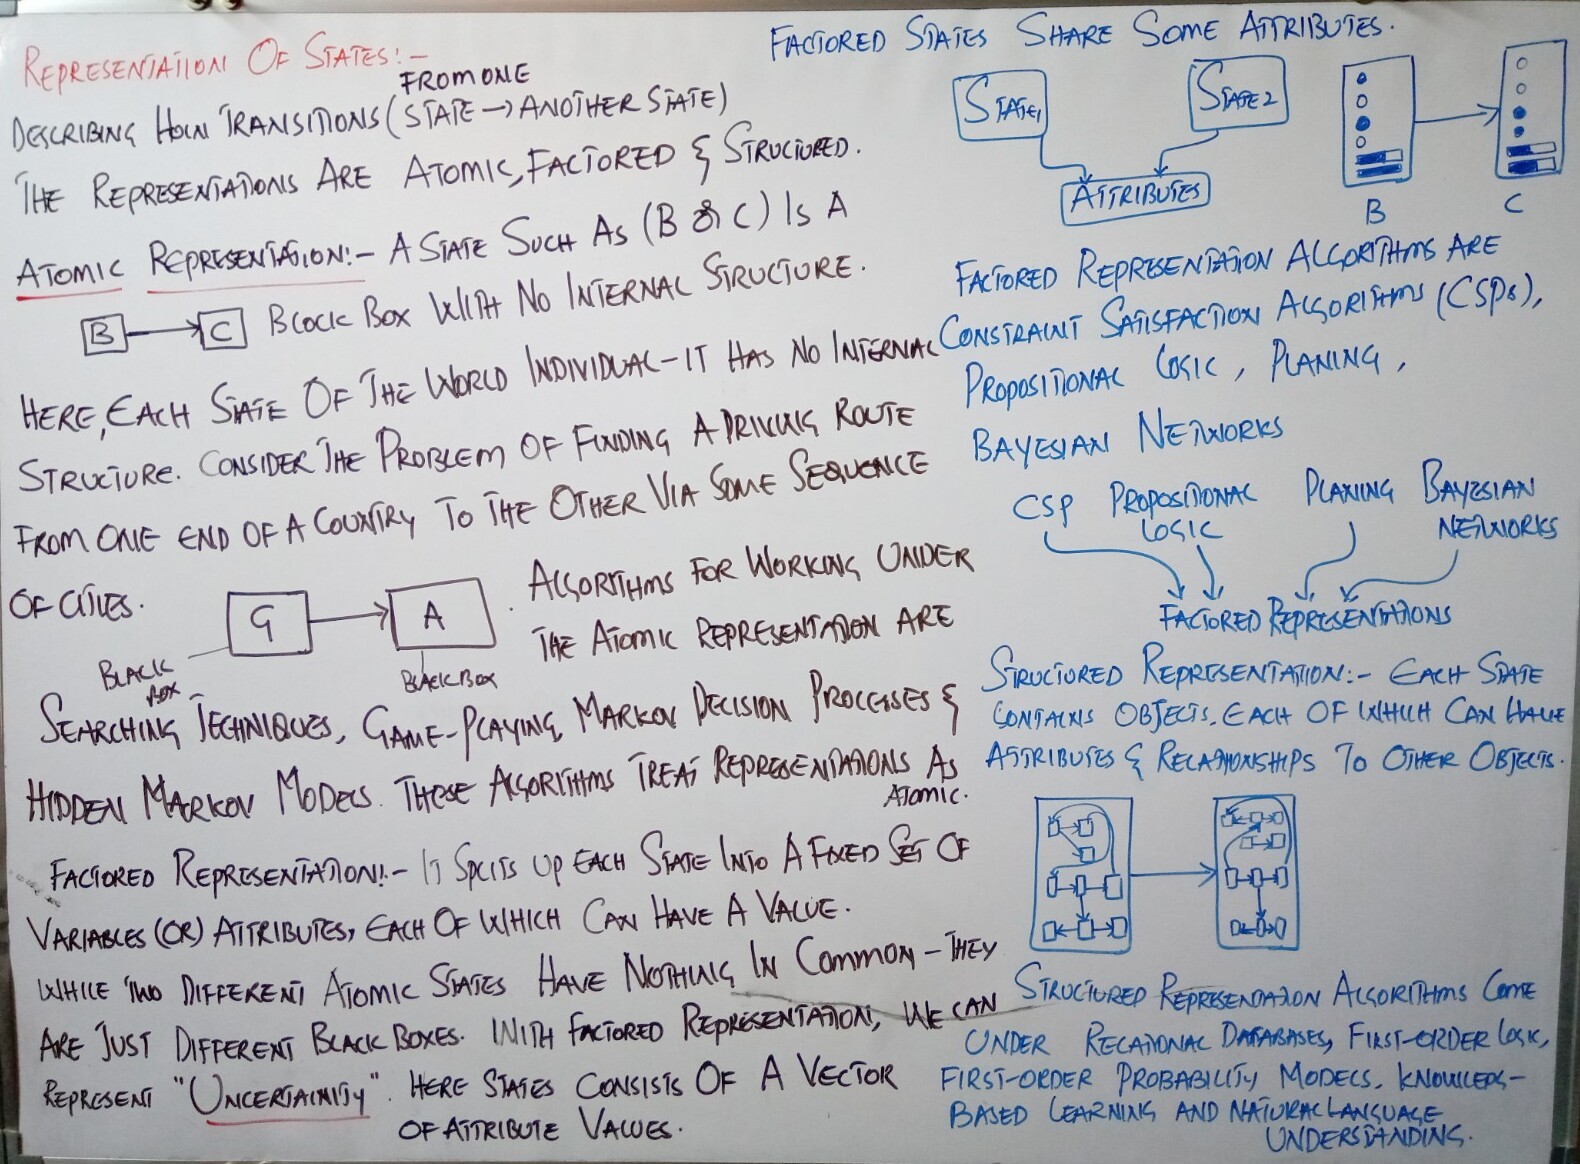 REPRESENTATION OF STATES:-
FROM ONE
DESCRIBING HOW TRANSITIONS (STATE → ANOTHER STATE)
THE REPRESENTATIONS ARE ATOMIC, FACTORED & STRUCTURED.
ATOMIC REPRESENTATION:- A STATE SUCH AS (B & C) IS A
B → C BLOCK BOX WITH NO INTERNAL STRUCTURE.
HERE, EACH STATE OF THE WORLD INDIVIDUAL - IT HAS NO INTERNAL
STRUCTURE. CONSIDER THE PROBLEM OF FINDING A DRIVING ROUTE
FROM ONE END OF A COUNTRY TO THE OTHER VIA SOME SEQUENCE
OF CITIES.
G → A
BLACK BOX
BLACK BOX
ALGORITHMS FOR WORKING UNDER
THE ATOMIC REPRESENTATION ARE
SEARCHING TECHNIQUES, GAME-PLAYING, MARKOV DECISION PROCESSES &
HIDDEN MARKOV MODELS. THESE ALGORITHMS TREAT REPRESENTATIONS AS
ATOMIC.
FACTORED REPRESENTATION:- IT SPLITS UP EACH STATE INTO A FIXED SET OF
VARIABLES (OR) ATTRIBUTES, EACH OF WHICH CAN HAVE A VALUE.
WHILE TWO DIFFERENT ATOMIC STATES HAVE NOTHING IN COMMON - THEY
ARE JUST DIFFERENT BLACK BOXES. WITH FACTORED REPRESENTATION, WE CAN
REPRESENT "UNCERTAINITY". HERE STATES CONSISTS OF A VECTOR
OF ATTRIBUTE VALUES.
FACTORED STATES SHARE SOME ATTRIBUTES.
STATE1 STATE2
ATTRIBUTES
B C
FACTORED REPRESENTATION ALGORITHMS ARE
CONSTRAINT SATISFACTION ALGORITHMS (CSPs),
PROPOSITIONAL LOGIC, PLANING,
BAYESIAN NETWORKS
CSP PROPOSITIONAL PLANING BAYESIAN
LOGIC NETWORKS
FACTORED REPRESENTATIONS
STRUCTURED REPRESENTATION:- EACH STATE
CONTAINS OBJECTS, EACH OF WHICH CAN HAVE
ATTRIBUTES & RELATIONSHIPS TO OTHER OBJECTS.
STRUCTURED REPRESENTATION ALGORITHMS COME
UNDER RELATIONAL DATABASES, FIRST-ORDER LOGIC,
FIRST-ORDER PROBABILITY MODELS,
BASED LEARNING AND NATURAL LANGUAGE
UNDERSTANDING.